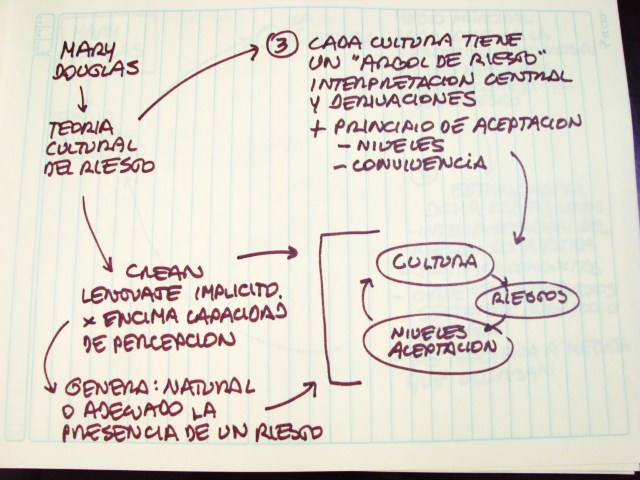 MARY
DOUGLAS
TEORIA
CULTURAL
DEL RIESGO
③ CADA CULTURA TIENE
UN "ARBOL DE RIESGO"
INTERPRETACION CENTRAL
Y DERIVACIONES
+ PRINCIPIO DE ACEPTACION
- NIVELES
- CONVIVENCIA
CREAN
LENGUAJE IMPLICITO.
x ENCIMA CAPACIDAD
DE PERCEPCION
GENERA: NATURAL
O ADECUADO LA
PRESENCIA DE UN RIESGO
CULTURA
RIESGOS
NIVELES
ACEPTACION